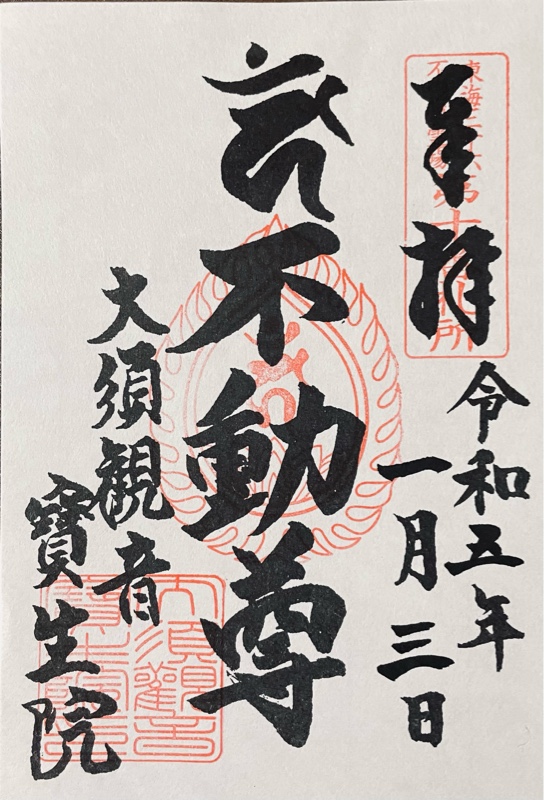 奉拝
令和五年
一月三日
不動尊
大須観音
寶生院
大須觀音